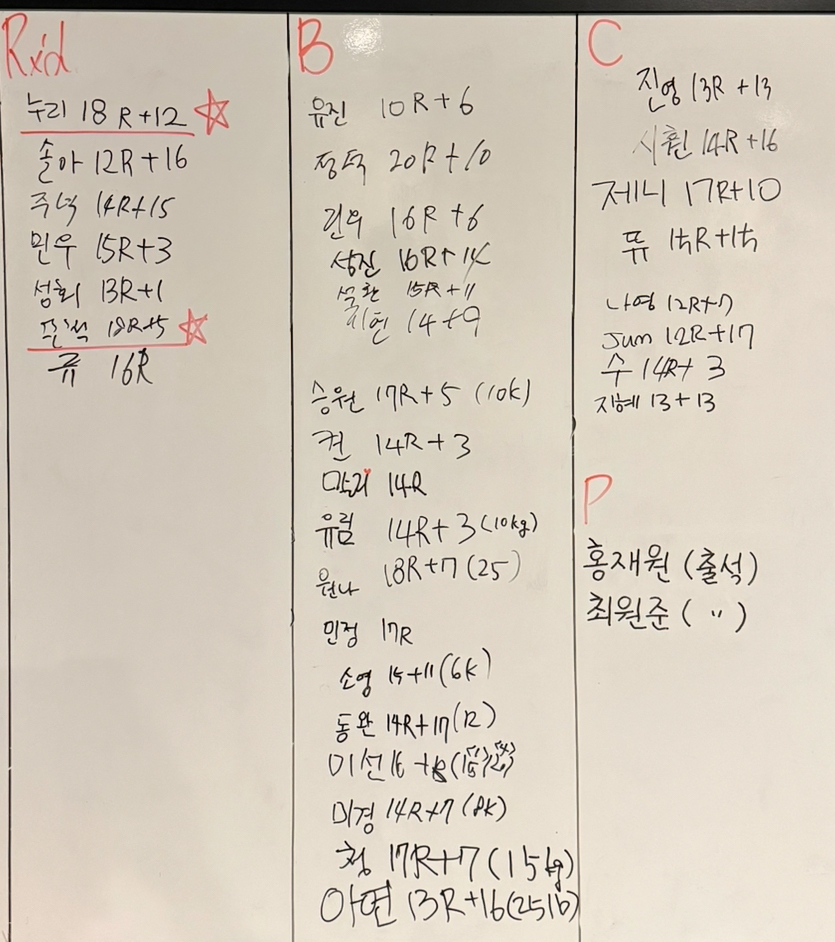 Rxd
누리 18R+12
솔아 12R+16
주녁 14R+15
민우 15R+3
성희 13R+1
준석 18R+5
퓨 16R
B
유진 10R+6
정덕 20R+10
건우 16R+6
성진 16R+14
석환 15R+11
지현 14+9
승원 17R+5 (10K)
켠 14R+3
마리 14R
유림 14R+3 (10kg)
원나 18R+7 (25)
민정 17R
소영 15+11 (6K)
동완 14R+17 (12)
미선 16
미경 14R+7 (8K)
청 17R+7 (15kg)
아연 13R+16 (25lb)
C
진영 13R+13
시훤 14R+16
제니 17R+10
쮸 15R+15
나영 12R+7
Jum 12R+17
수 14R+3
지혜 13+13
P
홍재원 (출석)
최원준 ( " )